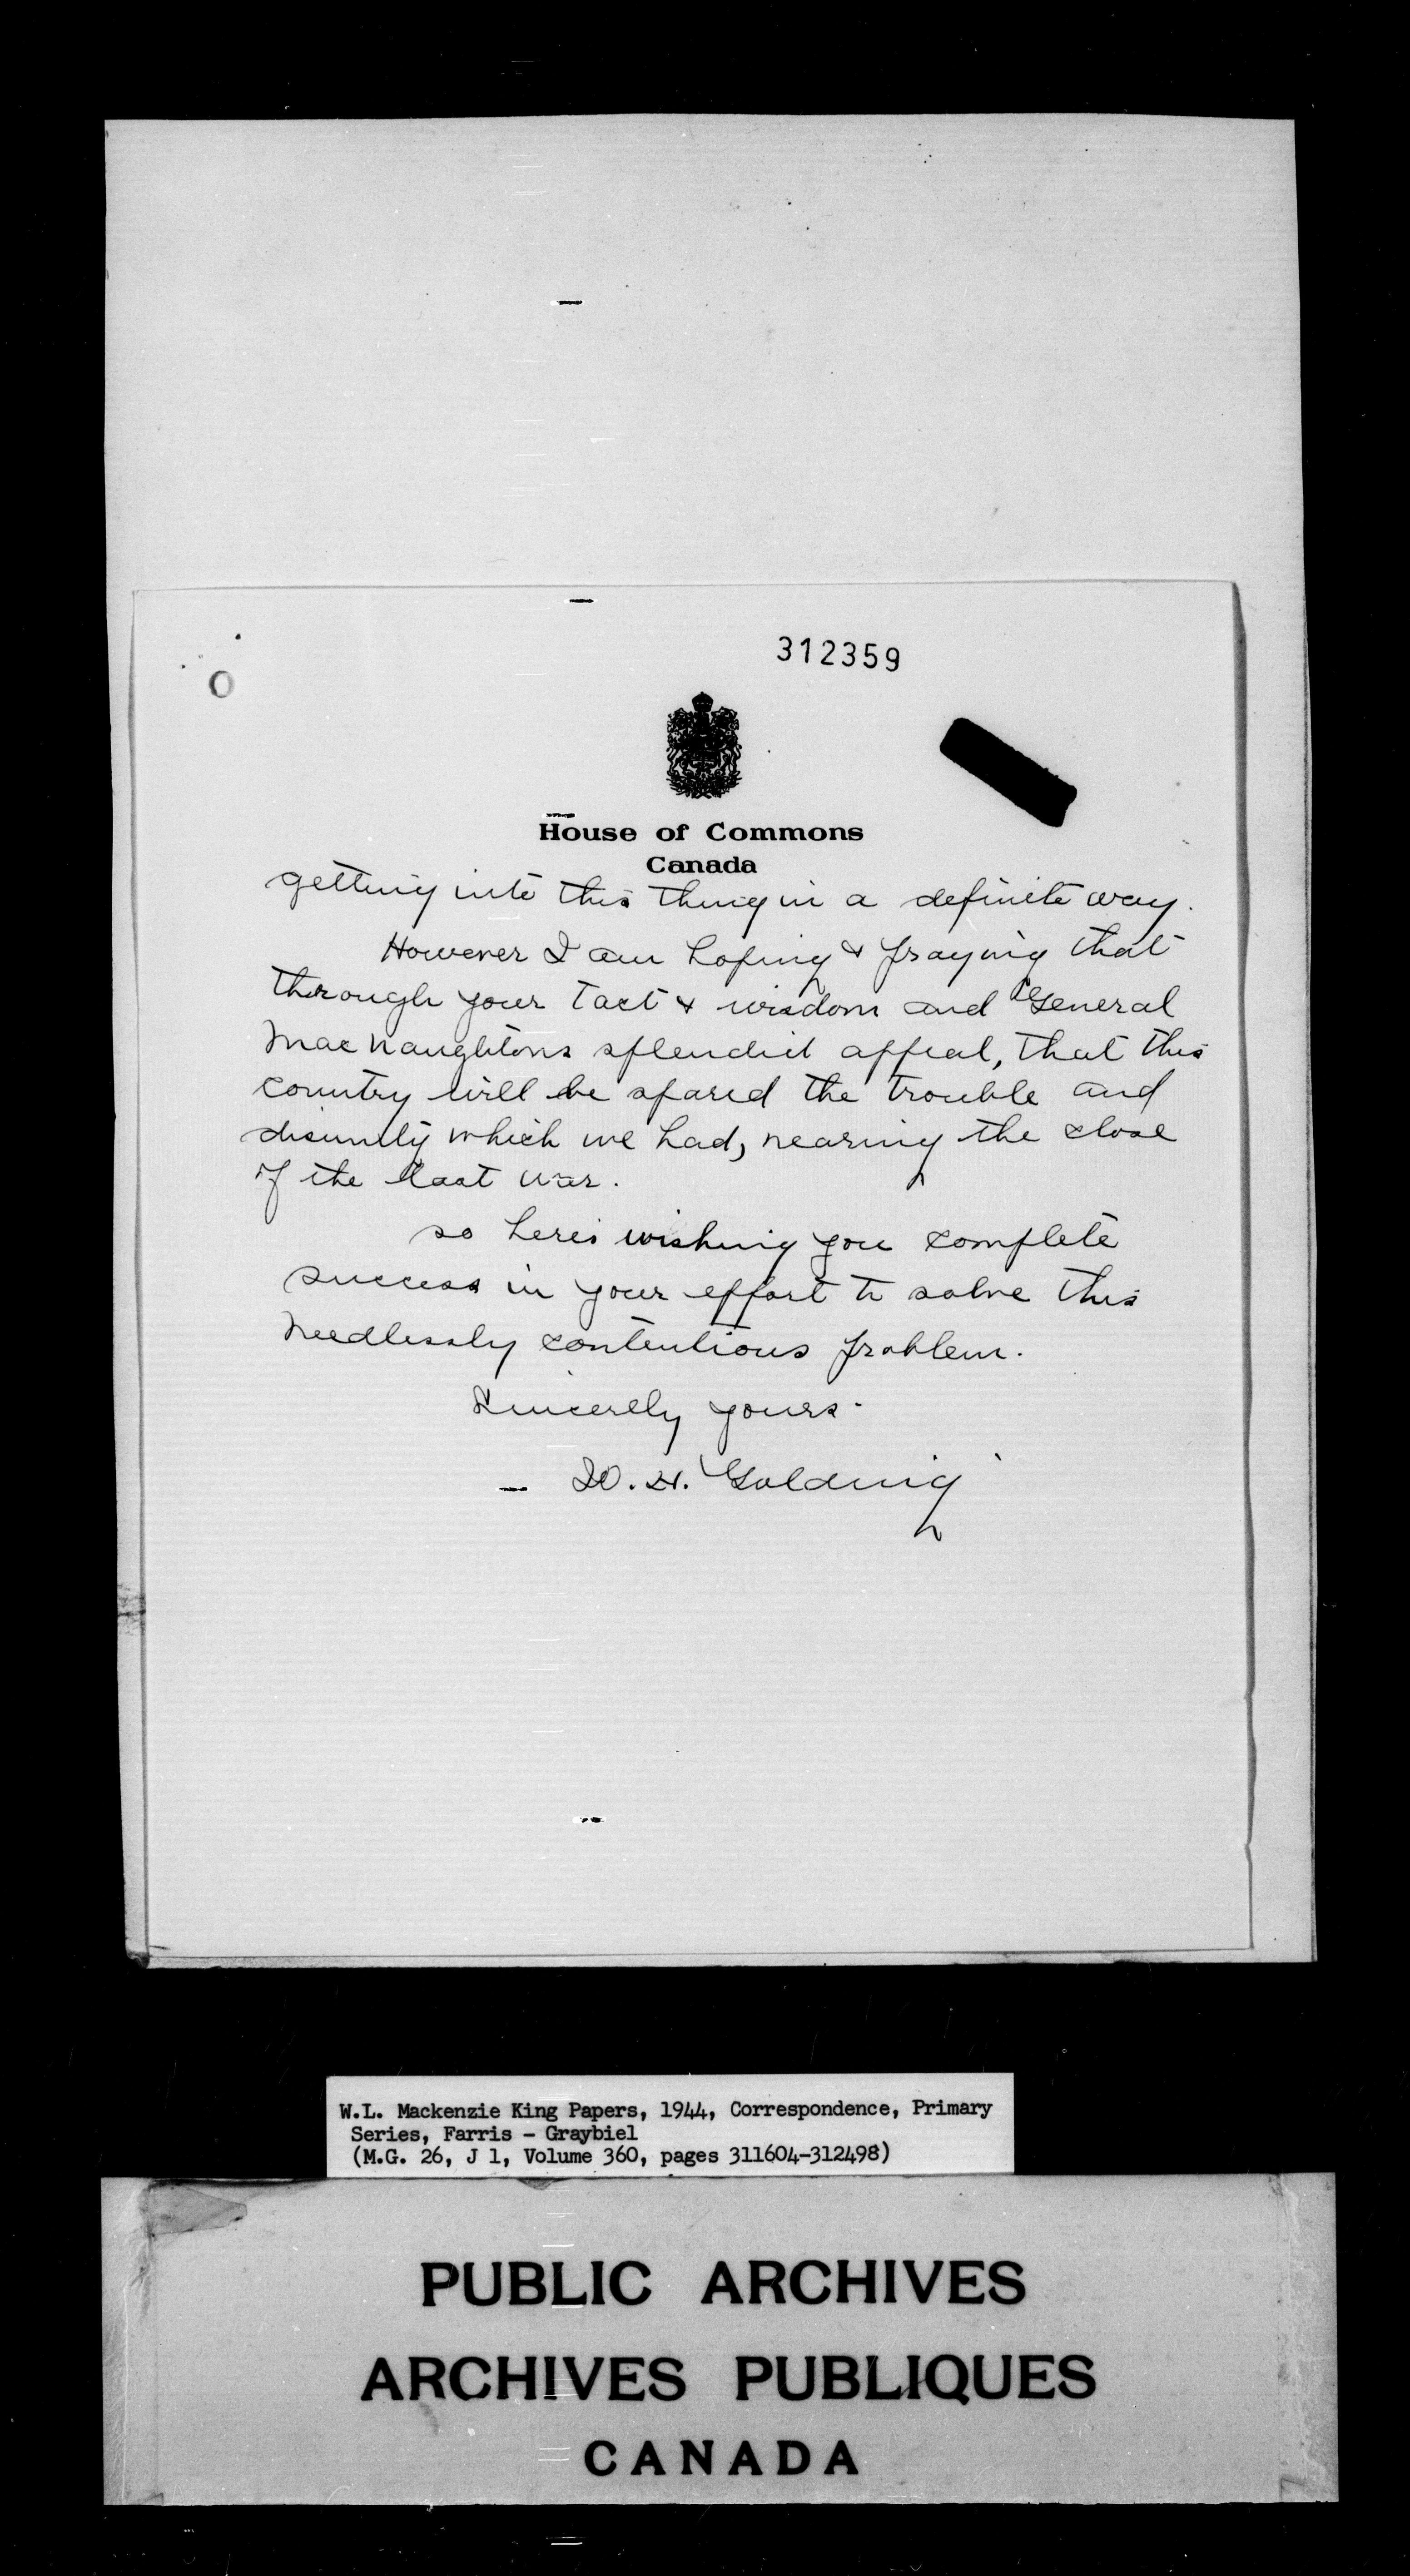 312359
House of Commons
Canada
getting into this thing in a definite way.
However I am hoping & praying that
through your tact & wisdom and General
MacNaughtons splendid appeal, that this
country will be spared the trouble and
disunity which we had, nearing the close
of the last war.
so here's wishing you complete
success in your effort to solve this
needlessly contentious problem.
Sincerely yours.
W. H. Golding
W.L. Mackenzie King Papers, 1944, Correspondence, Primary
Series, Farris - Graybiel
(M.G. 26, J 1, Volume 360, pages 311604-312498)
PUBLIC ARCHIVES
ARCHIVES PUBLIQUES
CANADA